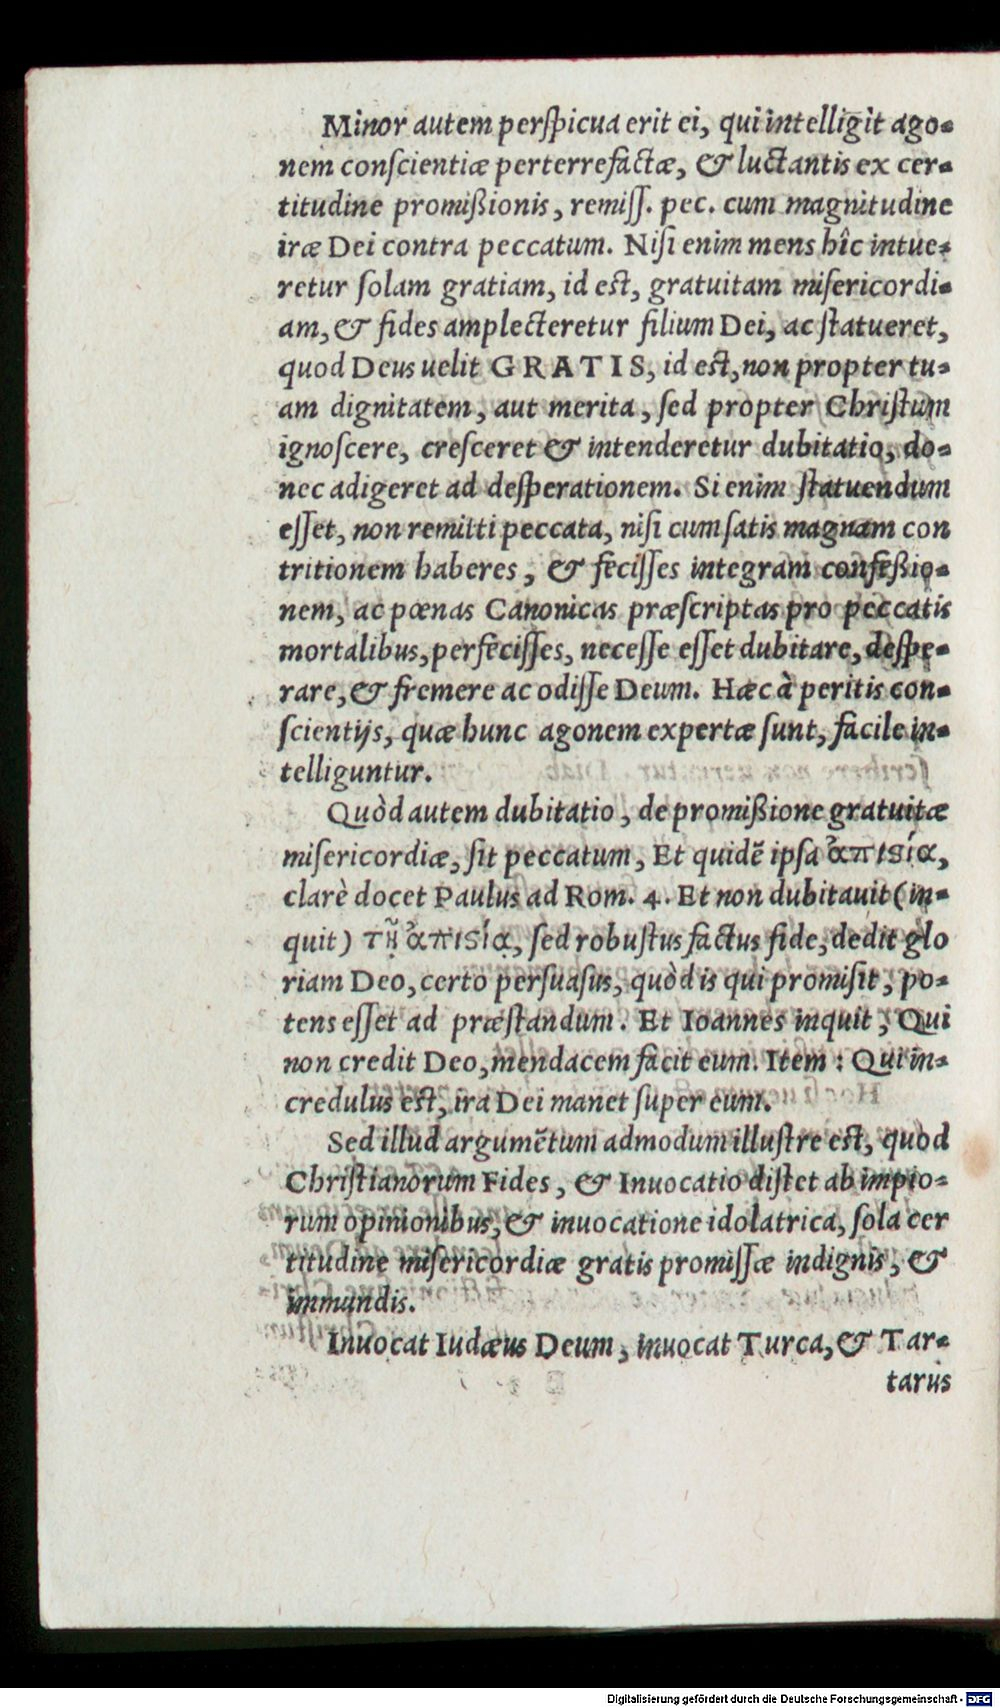 Minor autem perſpicua erit ei, qui intelligit ago-
nem conſcientiæ perterrefactæ, & luctantis ex cer-
titudine promißionis, remiſſ. pec. cum magnitudine
iræ Dei contra peccatum. Niſi enim mens hîc intue-
retur ſolam gratiam, id est, gratuitam miſericordi-
am, & fides amplecteretur filium Dei, ac ſtatueret,
quod Deus uelit GRATIS, id est, non propter tu-
am dignitatem, aut merita, ſed propter Chriſtum
ignoſcere, creſceret & intenderetur dubitatio, do-
nec adigeret ad deſperationem. Si enim ſtatuendum
eſſet, non remitti peccata, niſi cum ſatis magnam con
tritionem haberes, & feciſſes integram confeßio-
nem, ac pœnas Canonicas præſcriptas pro peccatis
mortalibus, perfeciſſes, neceſſe eſſet dubitare, deſpe-
rare, & fremere ac odiſſe Deum. Hæc à peritis con-
ſcientijs, quæ hunc agonem expertæ ſunt, facile in-
telliguntur.
Quòd autem dubitatio, de promißione gratuitæ
miſericordiæ, ſit peccatum, Et quidẽ ipſa ἀπιςία,
clarè docet Paulus ad Rom. 4. Et non dubitauit (in-
quit) τῇ ἀπιςίᾳ, ſed robuſtus factus fide, dedit glo
riam Deo, certo perſuaſus, quòd is qui promiſit, po-
tens eſſet ad præſtandum. Et Ioannes inquit, Qui
non credit Deo, mendacem facit eum. Item: Qui in-
credulus est, ira Dei manet ſuper eum.
Sed illud argumẽtum admodum illuſtre est, quod
Chriſtianorum Fides, & Inuocatio diſtet ab impio-
rum opinionibus, & inuocatione idolatrica, ſola cer
titudine miſericordiæ gratis promiſſæ indignis, &
immundis.
Inuocat Iudæus Deum, inuocat Turca, & Tar-
tarus
Digitalisierung gefördert durch die Deutsche Forschungsgemeinschaft - DFG